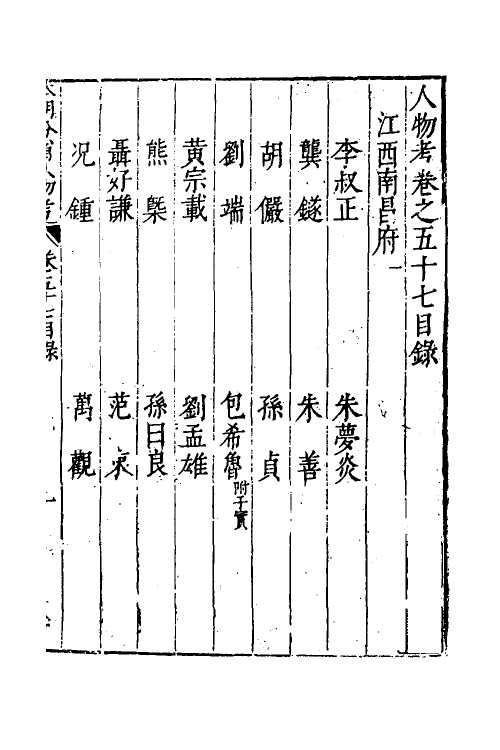 人物考卷之五十七目錄
江西南昌府一
李叔正　朱夢炎
龔鐩　朱善
胡儼　孫貞
劉端　包希魯附子實
黃宗載　劉孟雄
熊槩　孫曰良
聶好謙　范衷
况鍾　萬觀
卷五十七目錄